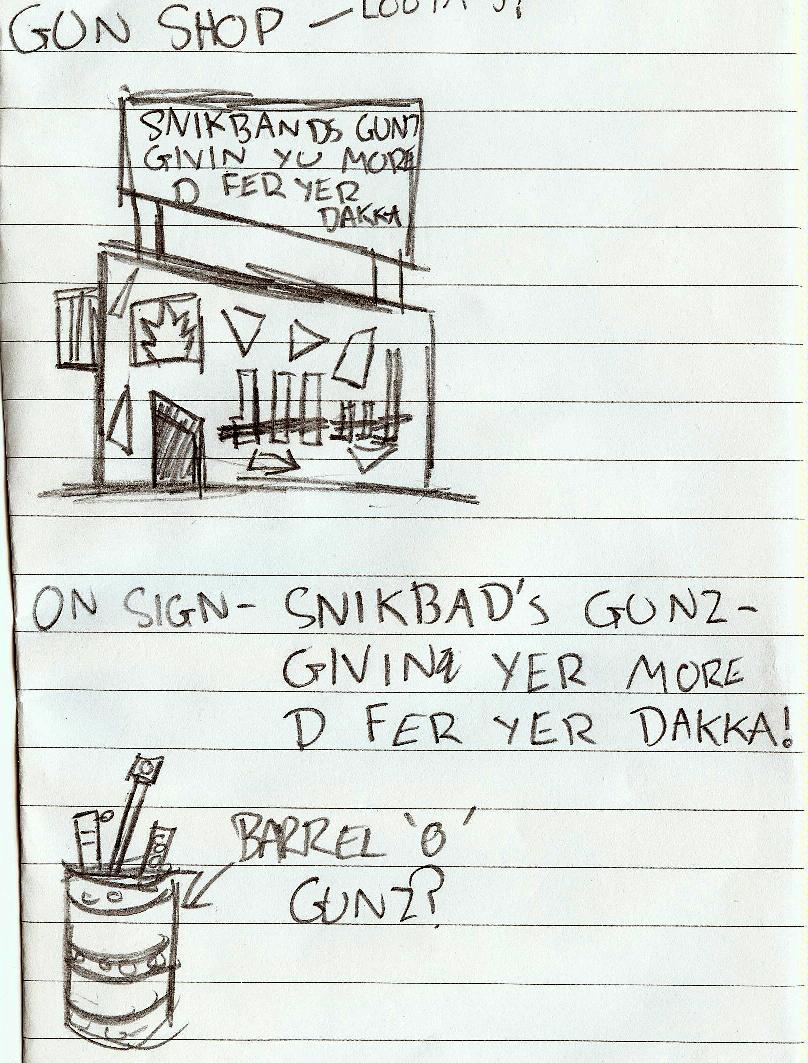 GUN SHOP - LOOTA'S?
SNIKBANDS GUNZ
GIVIN YU MORE
D FER YER
DAKKA
ON SIGN- SNIKBAD'S GUNZ-
GIVIN YER MORE
D FER YER DAKKA!
BARREL 'O'
GUNZ?